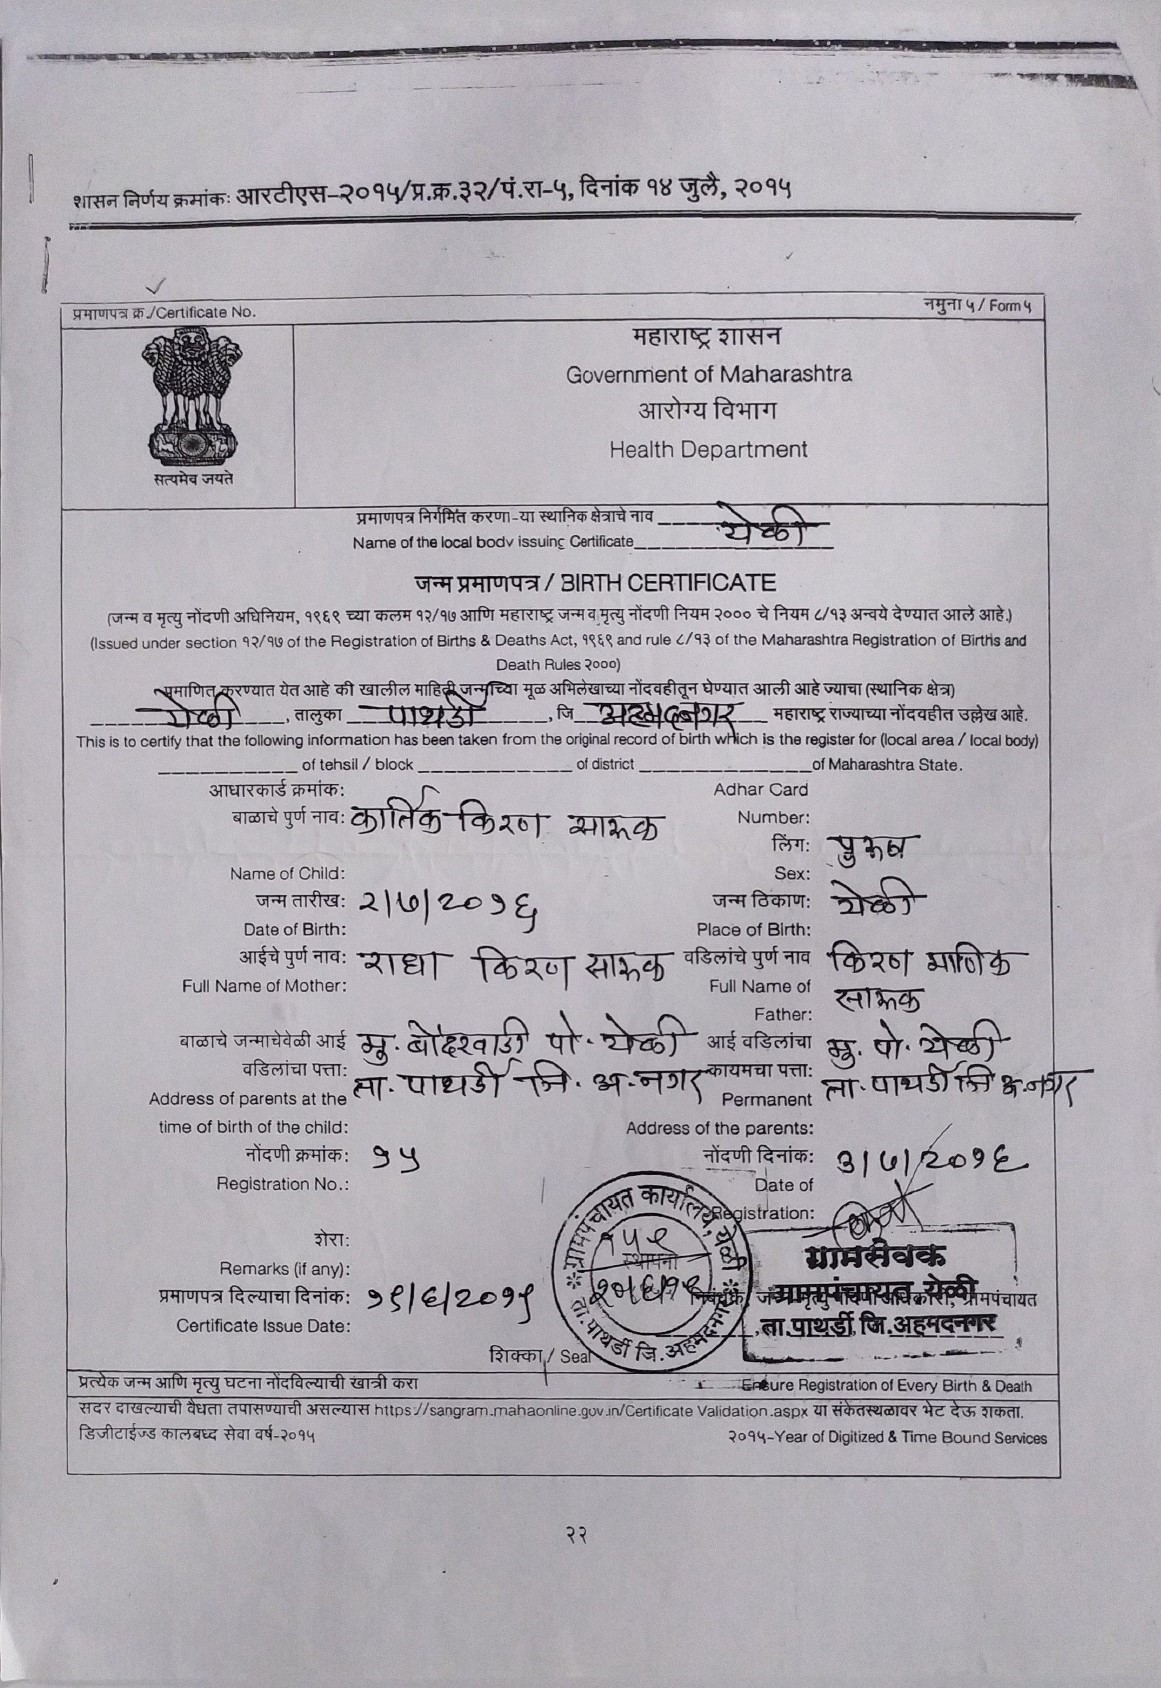 शासन निर्णय क्रमांकः आरटीएस-२०१५/प्र.क्र.३२/पं.रा-५, दिनांक १४ जुलै, २०१५
प्रमाणपत्र क्र./Certificate No.
नमुना ५ / Form ५
सत्यमेव जयते
महाराष्ट्र शासन
Government of Maharashtra
आरोग्य विभाग
Health Department
प्रमाणपत्र निर्गमित करणा-या स्थानिक क्षेत्राचे नाव येळी
Name of the local body issuing Certificate
जन्म प्रमाणपत्र / BIRTH CERTIFICATE
(जन्म व मृत्यु नोंदणी अधिनियम, १९६९ च्या कलम १२/१७ आणि महाराष्ट्र जन्म व मृत्यु नोंदणी नियम २००० चे नियम ८/१३ अन्वये देण्यात आले आहे.)
(Issued under section १२/१७ of the Registration of Births & Deaths Act, १९६९ and rule ८/१३ of the Maharashtra Registration of Births and
Death Rules २०००)
प्रमाणित करण्यात येत आहे की खालील माहिती जन्माच्या मूळ अभिलेखाच्या नोंदवहीतून घेण्यात आली आहे ज्याचा (स्थानिक क्षेत्र)
येळी, तालुका पाथर्डी, जि अहमदनगर महाराष्ट्र राज्याच्या नोंदवहीत उल्लेख आहे.
This is to certify that the following information has been taken from the original record of birth which is the register for (local area / local body)
of tehsil / block of district of Maharashtra State.
आधारकार्ड क्रमांक: Adhar Card
बाळाचे पुर्ण नाव: कार्तिक किरण सारूक Number:
लिंग: पुरूष
Name of Child: Sex:
जन्म तारीख: २/७/२०१६ जन्म ठिकाण: येळी
Date of Birth: Place of Birth:
आईचे पुर्ण नाव: राधा किरण सारूक वडिलांचे पुर्ण नाव किरण माणिक
Full Name of Mother: Full Name of सारूक
Father:
बाळाचे जन्माचेवेळी आई मु. बोंदरवाडी पो. येळी आई वडिलांचा मु. पो. येळी
वडिलांचा पत्ता: ता. पाथर्डी जि. अ.नगर कायमचा पत्ता: ता. पाथर्डी जि अ.नगर
Address of parents at the Permanent
time of birth of the child: Address of the parents:
नोंदणी क्रमांक: १५ नोंदणी दिनांक: ३/७/२०१६
Registration No.: Date of
Registration:
शेरा:
Remarks (if any):
प्रमाणपत्र दिल्याचा दिनांक: १९/६/२०१९
Certificate Issue Date:
ग्रामपंचायत कार्यालय, येळी
स्थापना
ता. पाथर्डी जि. अहमदनगर
ग्रामसेवक
ग्रामपंचायत येळी
ता. पाथर्डी, जि. अहमदनगर
ग्रामपंचायत
शिक्का / Seal
प्रत्येक जन्म आणि मृत्यु घटना नोंदविल्याची खात्री करा Ensure Registration of Every Birth & Death
सदर दाखल्याची वैधता तपासण्याची असल्यास https://sangram.mahaonline.gov.in/Certificate Validation.aspx या संकेतस्थळावर भेट देऊ शकता.
डिजीटाईज्ड कालबध्द सेवा वर्ष-२०१५ २०१५-Year of Digitized & Time Bound Services
२२